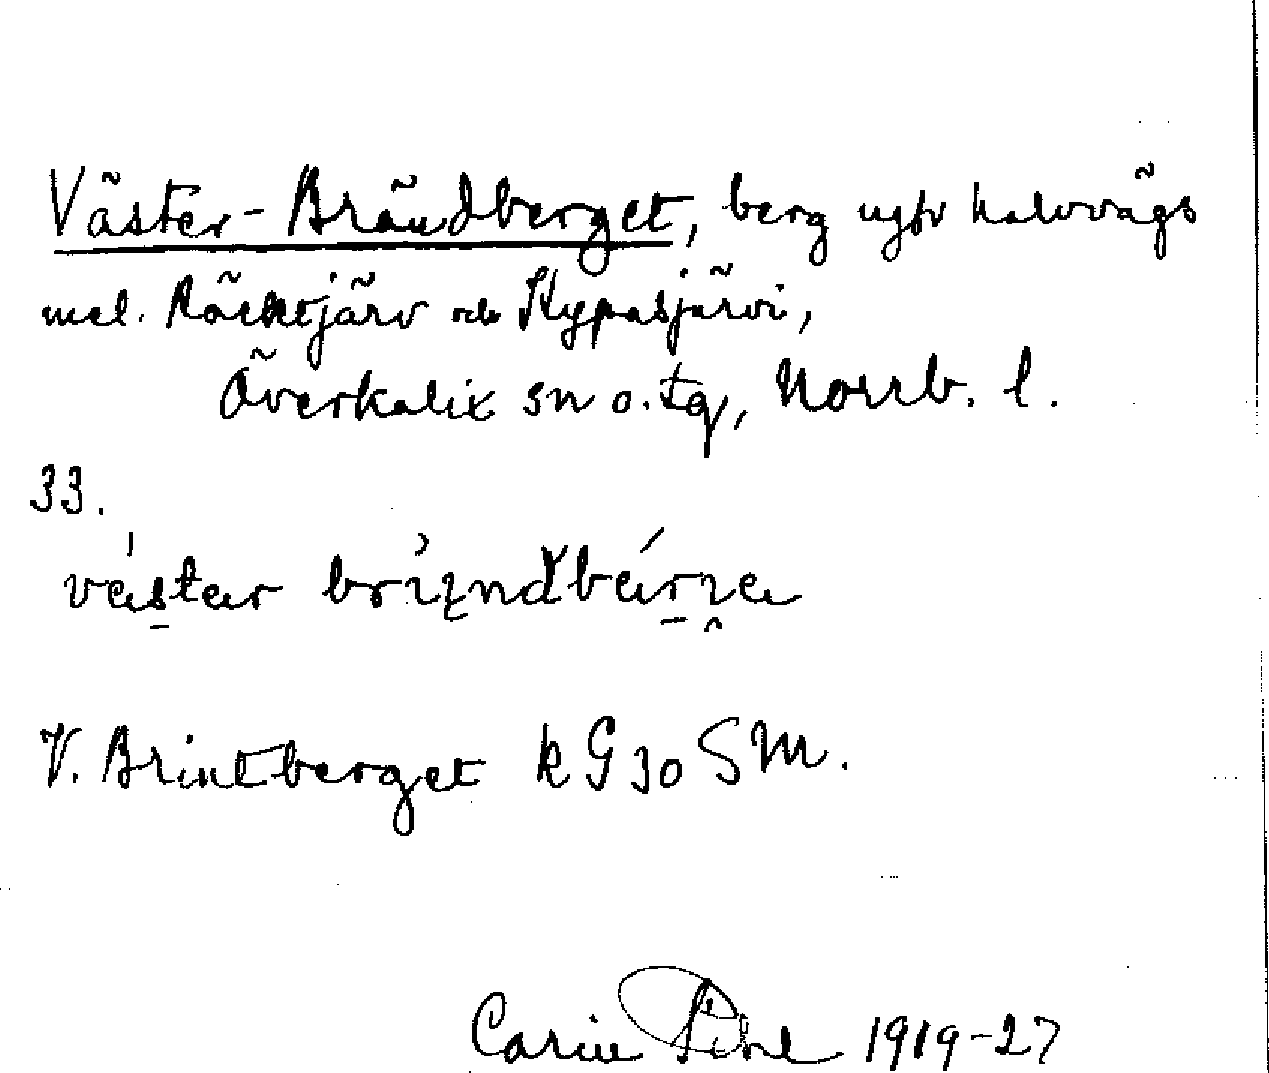 Väster-Brändberget, berg ugfr halvvägs
mel. Räcktjärv och Kypasjärvi,
Överkalix sn o. tg, Norrb. l.
33.
V. Brintberget k G 30 SM.
Carin Pihl 1919-27